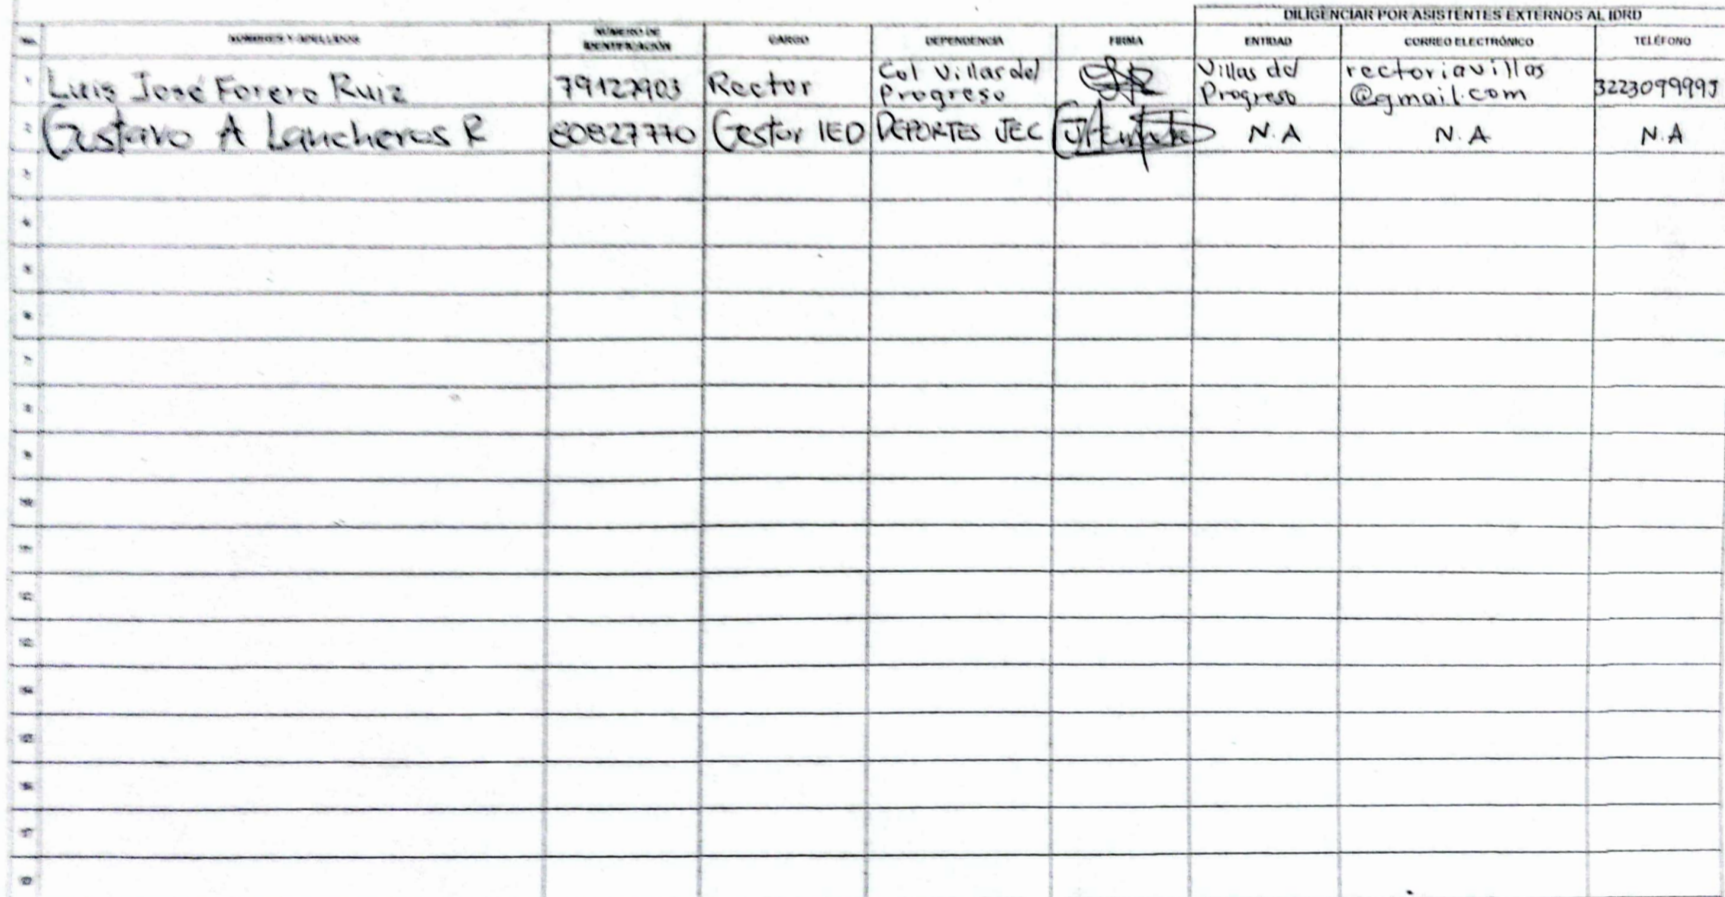 DILIGENCIAR POR ASISTENTES EXTERNOS AL IDRD
No. NOMBRES Y APELLIDOS NÚMERO DE IDENTIFICACIÓN CARGO DEPENDENCIA FIRMA ENTIDAD CORREO ELECTRÓNICO TELÉFONO
1 Luis José Forero Ruiz 79127903 Rector Col Villas del Progreso Villas del Progreso rectoriavillas@gmail.com 3223099995
2 Gustavo A Lancheros R 80827770 Gestor IED DEPORTES JEC N.A N.A N.A
3
4
5
6
7
8
9
10
11
12
13
14
15
16